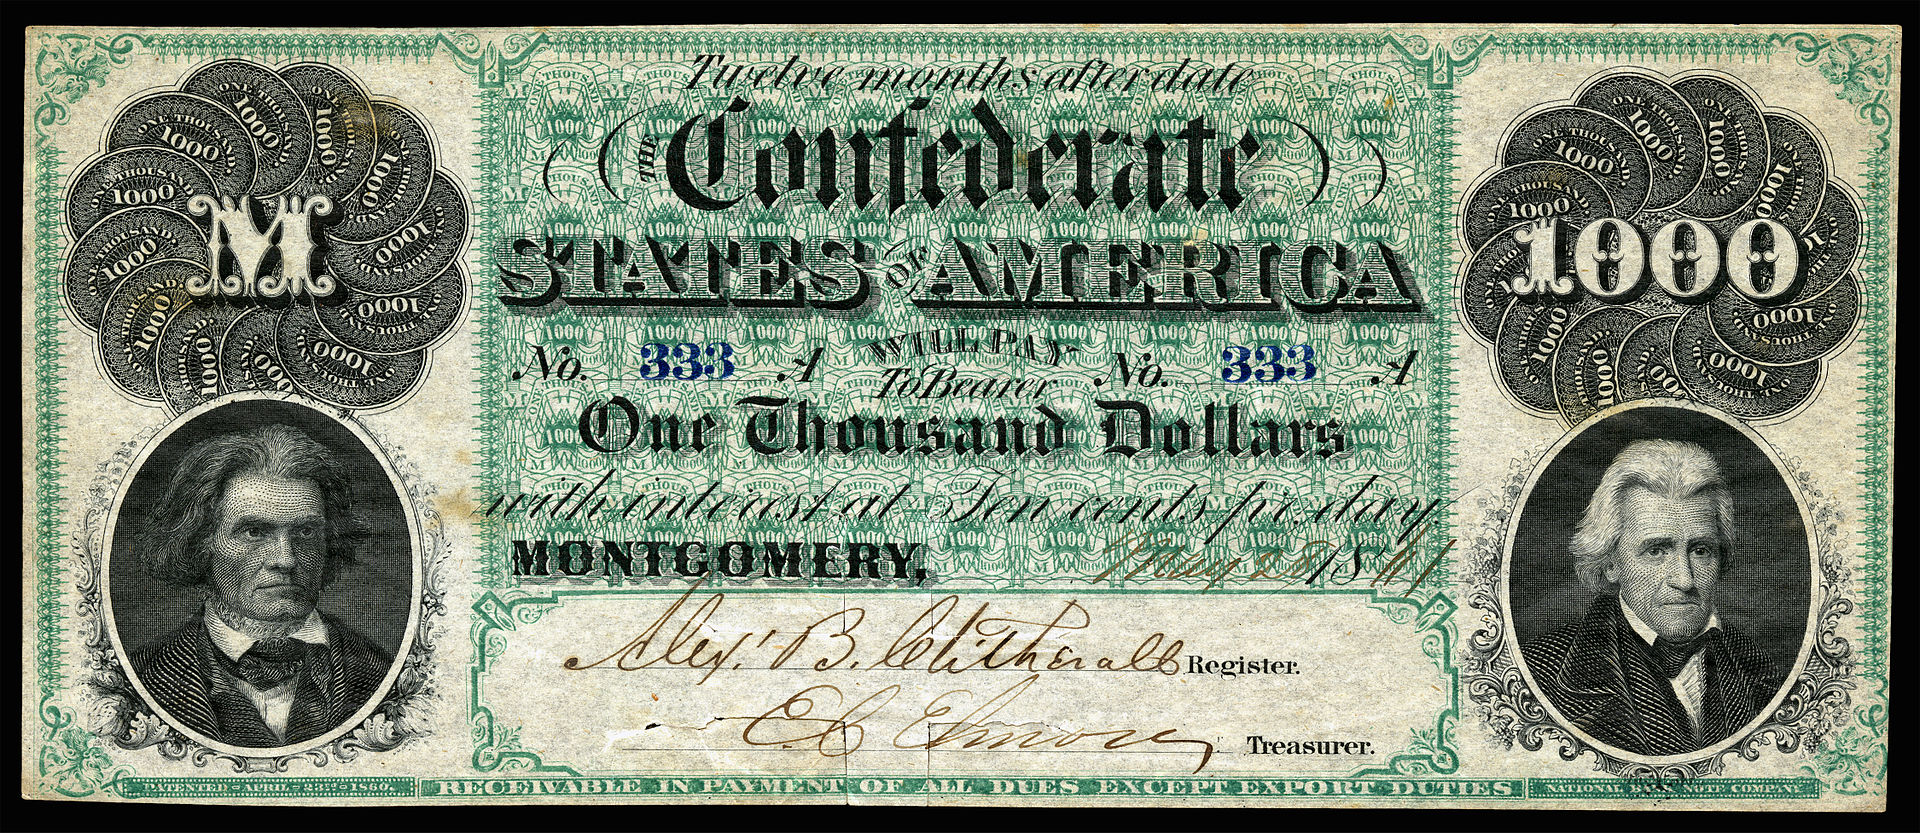 Twelve months after date
THE Confederate
STATES OF AMERICA
No. 333 A WILL PAY No. 333 A
To Bearer
One Thousand Dollars
with interest at Ten cents pr. day.
MONTGOMERY, May 28 1861
Alexr. B. Clitherall Register.
E C Elmore Treasurer.
M
1000
ONE THOUSAND 1000
PATENTED APRIL 23RD 1860.
RECEIVABLE IN PAYMENT OF ALL DUES EXCEPT EXPORT DUTIES
NATIONAL BANK NOTE COMPANY